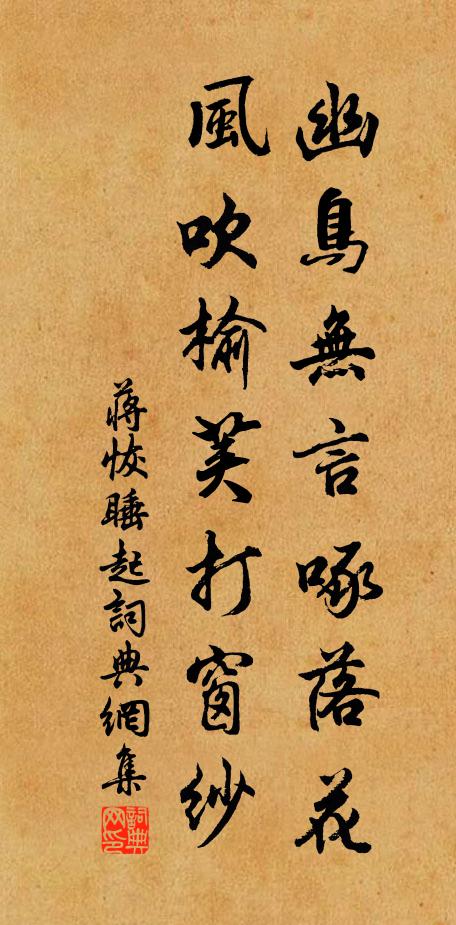 幽鳥無言啄落花
風吹榆荚打窗紗
蔣恢睡起詞典網集
詞典
网印